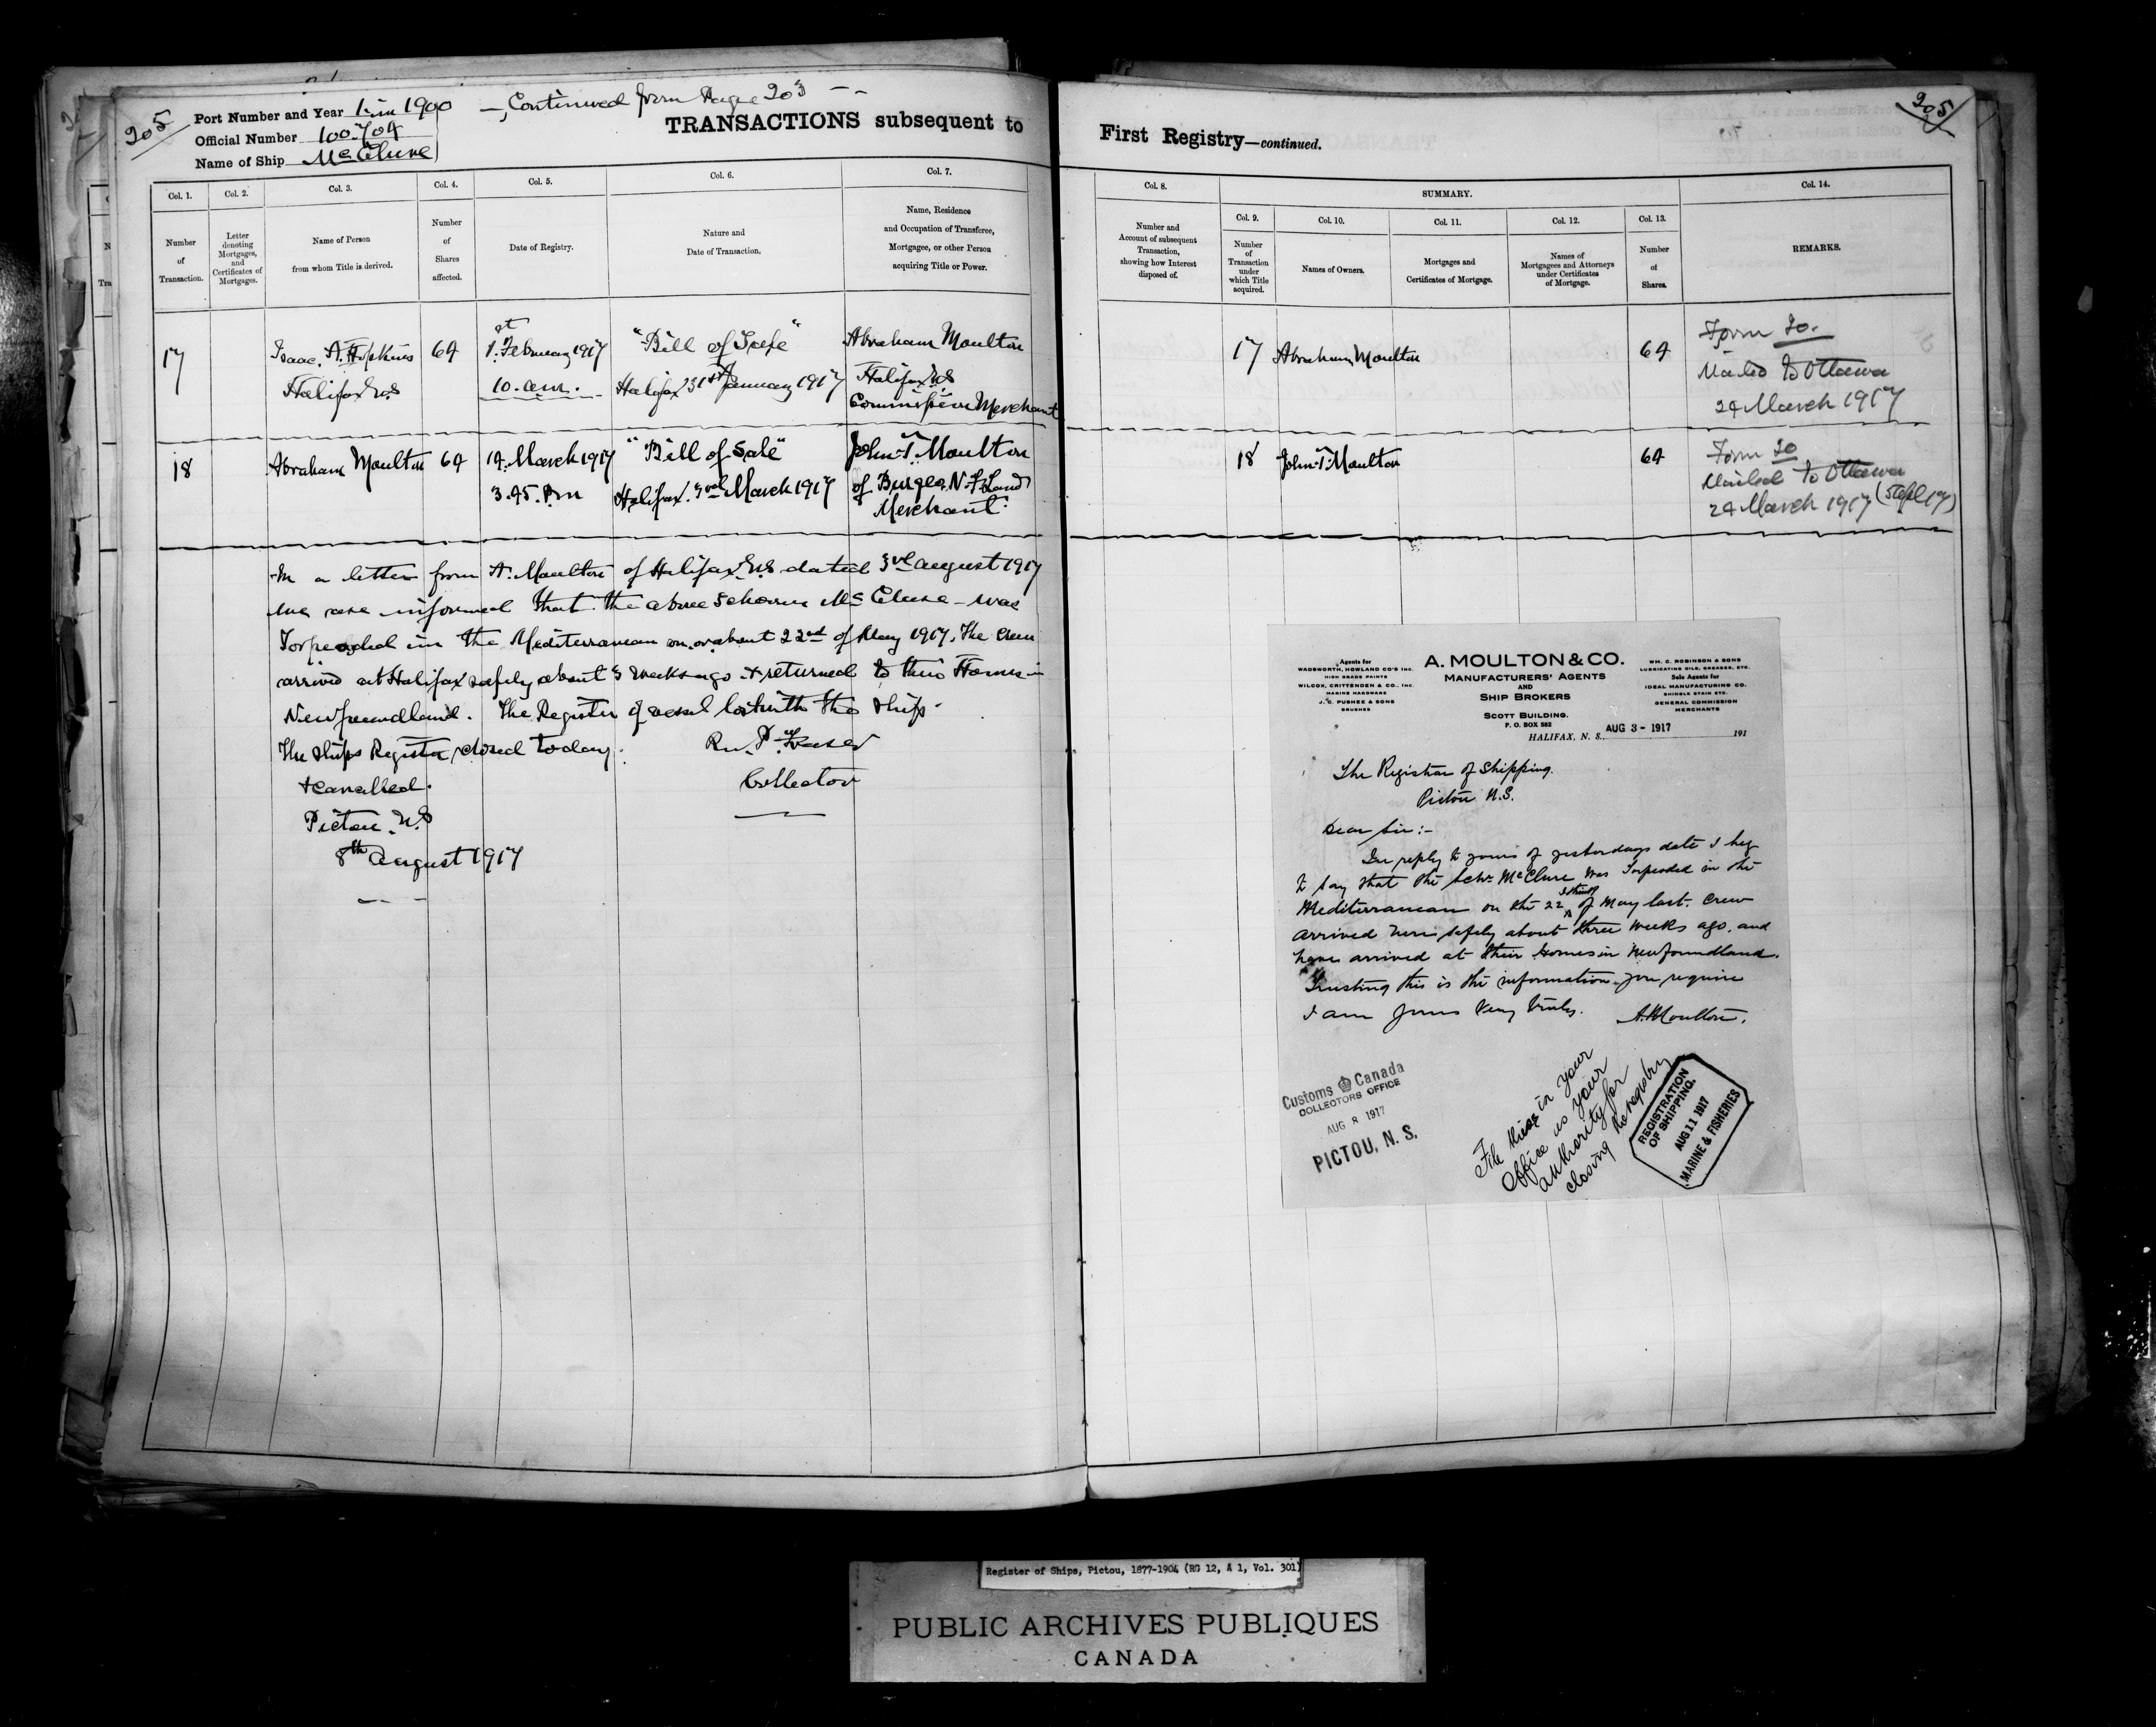 205
Port Number and Year 1 in 1900 — Continued from Page 203 —
Official Number 100.704
Name of Ship McClure
TRANSACTIONS subsequent to
Col. 1.
Col. 2.
Col. 3.
Col. 4.
Col. 5.
Col. 6.
Col. 7.
Number
of
Transaction.
Letter
denoting
Mortgages,
and
Certificates of
Mortgages.
Name of Person
from whom Title is derived.
Number
of
Shares
affected.
Date of Registry.
Nature and
Date of Transaction.
Name, Residence
and Occupation of Transferee,
Mortgagee, or other Person
acquiring Title or Power.
17
Isaac. A. Hopkins
Halifax N.S
64
1st. February 1917
10. a.m.
"Bill of Sale"
Halifax 31st January 1917
Abraham Moulton
Halifax N.S
Commission Merchant
18
Abraham Moulton
64
14. March 1917
3.45. P.m
"Bill of Sale"
Halifax. 3rd March 1917
John T. Moulton
of Burgeo. N. F. Land
Merchant.
In a letter from A. Moulton of Halifax N.S dated 3rd august 1917
we are informed that the above Schooner McClure - was
Torpeoded in the Mediterranean on or about 22nd of May 1917. The crew
arrived at Halifax safely about 3 weeks ago & returned to their Homes in
Newfoundland. The Register of vessel lost with the ship -
The ships Register closed today.
& cancelled.
Pictou. N.S
8th august 1917
Fraser
Collector
205
First Registry—continued.
Col. 8.
SUMMARY.
Col. 14.
Col. 9.
Col. 10.
Col. 11.
Col. 12.
Col. 13.
Number and
Account of subsequent
Transaction,
showing how Interest
disposed of.
Number
of
Transaction
under
which Title
acquired.
Names of Owners.
Mortgages and
Certificates of Mortgage.
Names of
Mortgagees and Attorneys
under Certificates
of Mortgage.
Number
of
Shares.
REMARKS.
17
Abraham Moulton
64
Form 20.
Mailed to Ottawa
24 March 1917
18
John T. Moulton
64
Form 20
Mailed to Ottawa
24 March 1917
Agents for
WADSWORTH, HOWLAND CO'S INC.
HIGH GRADE PAINTS
WILCOX, CRITTENDEN & CO., INC.
MARINE HARDWARE
J. C. PUSHEE & SONS
BRUSHES
A. MOULTON & CO.
MANUFACTURERS' AGENTS
AND
SHIP BROKERS
SCOTT BUILDING.
P. O. BOX 582
WM. C. ROBINSON & SONS
LUBRICATING OILS, GREASES, ETC.
Sole Agents for
IDEAL MANUFACTURING CO.
SHINGLE STAIN ETC.
GENERAL COMMISSION
MERCHANTS
HALIFAX, N. S., AUG 3 - 1917 191
The Registrar of Shipping.
Pictou N.S.
Dear Sir:-
In reply to yours of yesterdays date I beg
to say that the Schr. McClure was Torpeoded in the
Mediterranean on the 22 I think of May last. Crew
arrived here safely about three weeks ago, and
have arrived at their Homes in Newfoundland.
Trusting this is the information you require
I am yours Very Truly. A. Moulton.
Customs Canada
COLLECTORS OFFICE
AUG 8 1917
PICTOU, N. S.
File these in your
office as your
authority for
closing the registry
REGISTRATION
OF SHIPPING.
AUG 11 1917
MARINE & FISHERIES
Register of Ships, Pictou, 1877-1904 (RG 12, A 1, Vol. 301)
PUBLIC ARCHIVES PUBLIQUES
CANADA